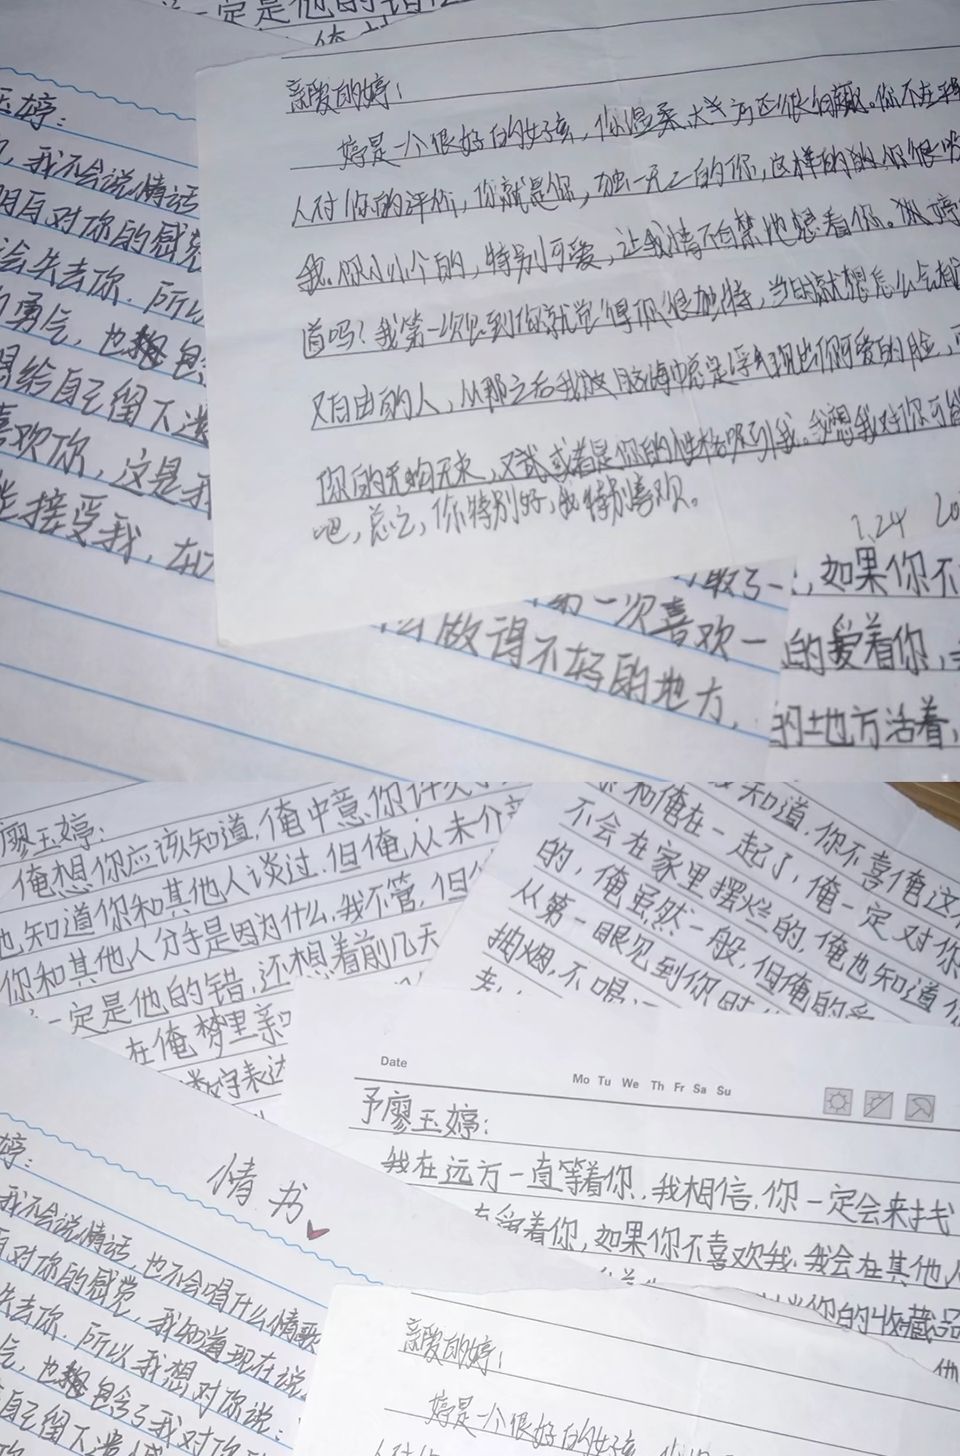 一定是他的错
玉婷：
我不会说情话
明后对你的感觉
会失去你．所以
勇气，也想包含
给自己留下遗
喜欢你，这是我
接受我．在
亲爱的婷：
婷是一个很好的女孩，你温柔、大方还很
人对你的评价，你就是你，独一无二的你，这样的你很吸
我．你小小个的，特别可爱，让我情不自禁地想着你。
道吗？我第一次见到你就觉得你很独特，当时就想怎么会有
又自由的人，从那之后我脑海中总是浮现出你可爱的脸，
你的无拘无束，又或者是你的性格吸引我。我想我对你可能
吧，总之，你特别好，我特别喜欢。
1.24
第一次喜欢一
做得不好的地方．
如果你不
的爱着你，
的地方活着，
廖玉婷：
俺想你应该知道．俺中意你许久了
也知道你和其他人谈过．但俺从未介意
你和其他人分手是因为什么．我不管．但
一定是他的错．还想着前几天
在俺梦里亲
文字表达
知道．你不喜俺这
你和俺在一起了，俺一定对你
不会在家里摆烂的，俺也知道你
的，俺虽然一般，但俺的爱
从第一眼见到你时
抽烟，不喝
Date
Mo Tu We Th Fr Sa Su
予廖玉婷：
我在远方一直等着你．我相信．你一定会来找
着你，如果你不喜欢我．我会在其他人
你的收藏品
他
情书
婷：
我不会说情话，也不会唱什么情歌
对你的感觉，我知道现在说
失去你．所以我想对你说：
气，也想包含了我对你
自己留下遗憾
亲爱的婷：
婷是一个很好的女孩，你温柔
人对你